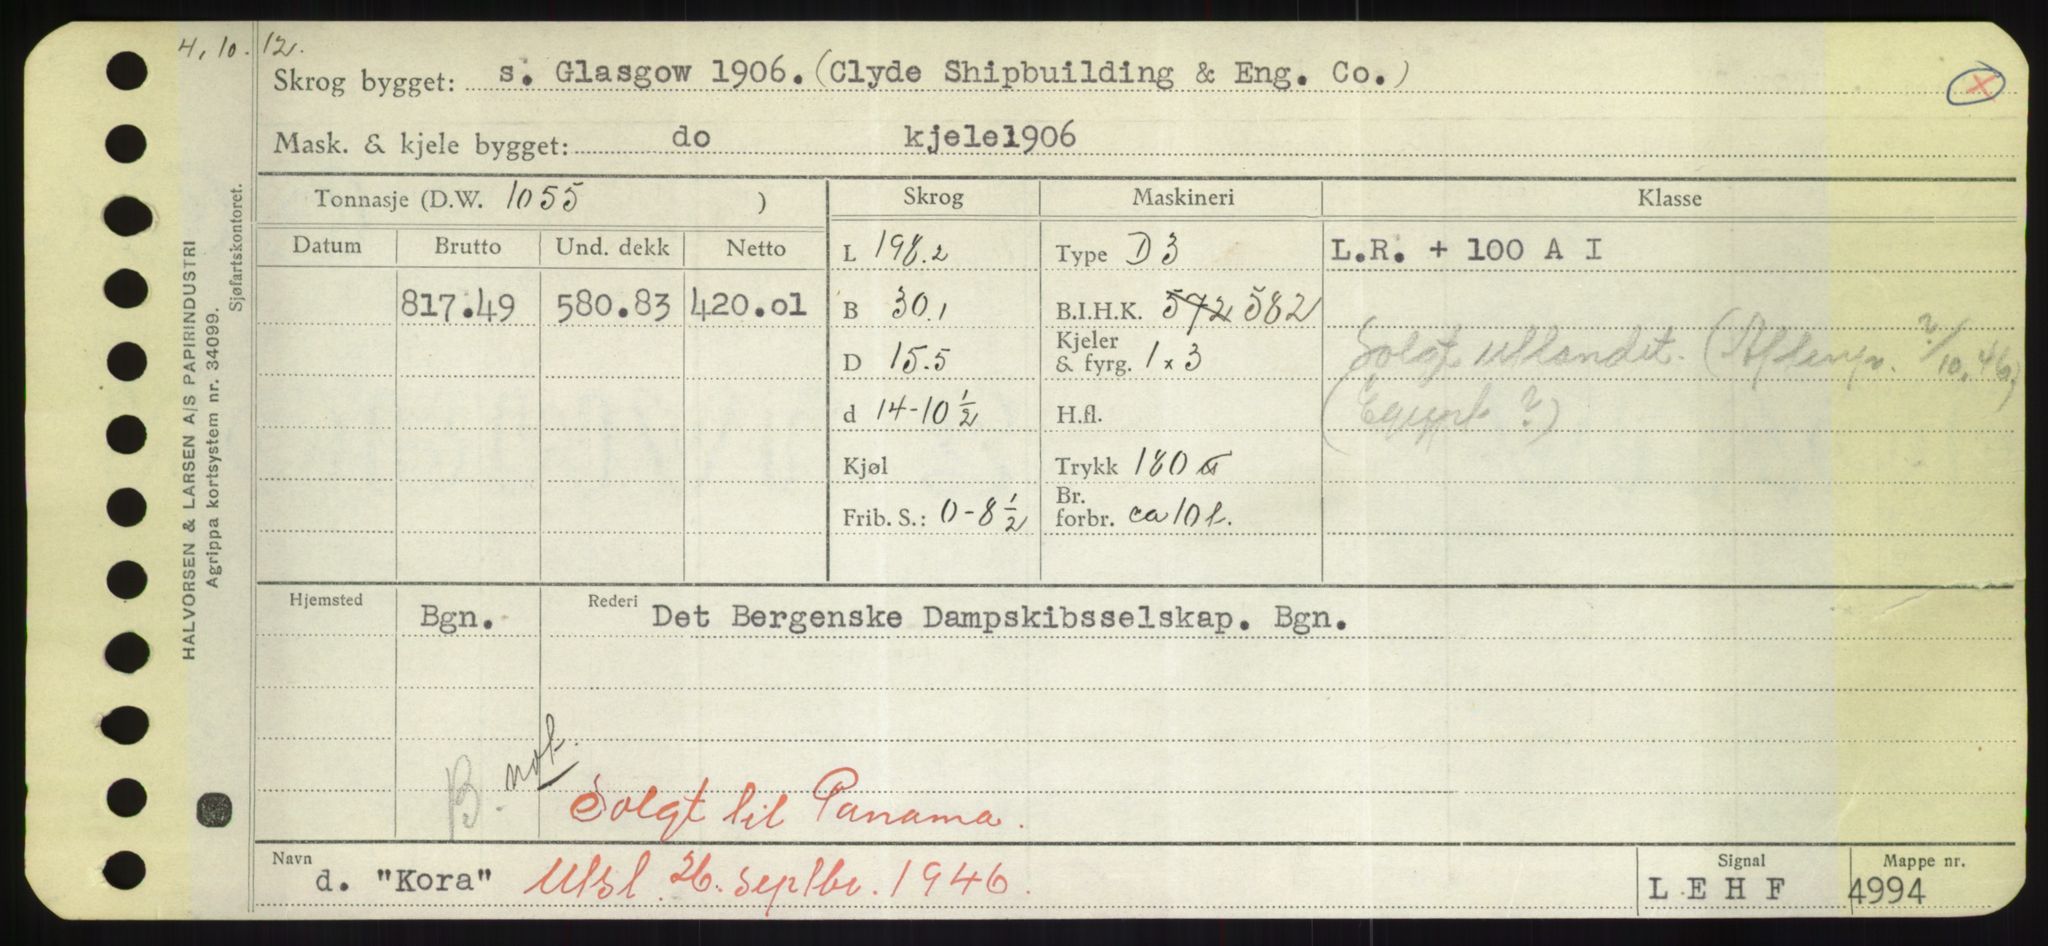 4, 10. 12.
Skrog bygget: s. Glasgow 1906. (Clyde Shipbuilding & Eng. Co.)
Mask. & kjele bygget: do kjele1906
Tonnasje (D.W. 1055 )
Skrog
Maskineri
Klasse
Datum Brutto Und. dekk Netto
817.49 580.83 420.01
L 198.2
B 30.1
D 15.5
d 14-10 1/2
Kjøl
Frib. S.: 0-8 1/2
Type D3
B.I.H.K. 572 582
Kjeler
& fyrg. 1 x 3
H.fl.
Trykk 180
Br.
forbr. ca 10 t.
L.R. + 100 A I
Solgt utlandet. ( ?/10.46)
(Egypt ?)
Hjemsted Bgn.
Rederi Det Bergenske Dampskibsselskap. Bgn.
B. not.
Solgt til Panama.
Navn d. "Kora" Utsl. 26. septbr. 1946.
Signal LEHF
Mappe nr. 4994
HALVORSEN & LARSEN A/S PAPIRINDUSTRI
Agrippa kortsystem nr. 34099.
Sjøfartskontoret.